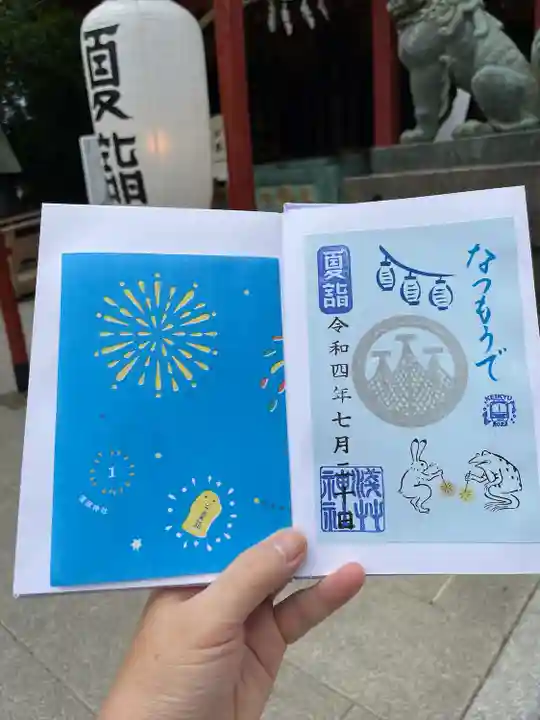 夏詣
1
浅草神社
夏詣
なつもうで
令和四年七月一日
KEIKYU
2022
浅草神社